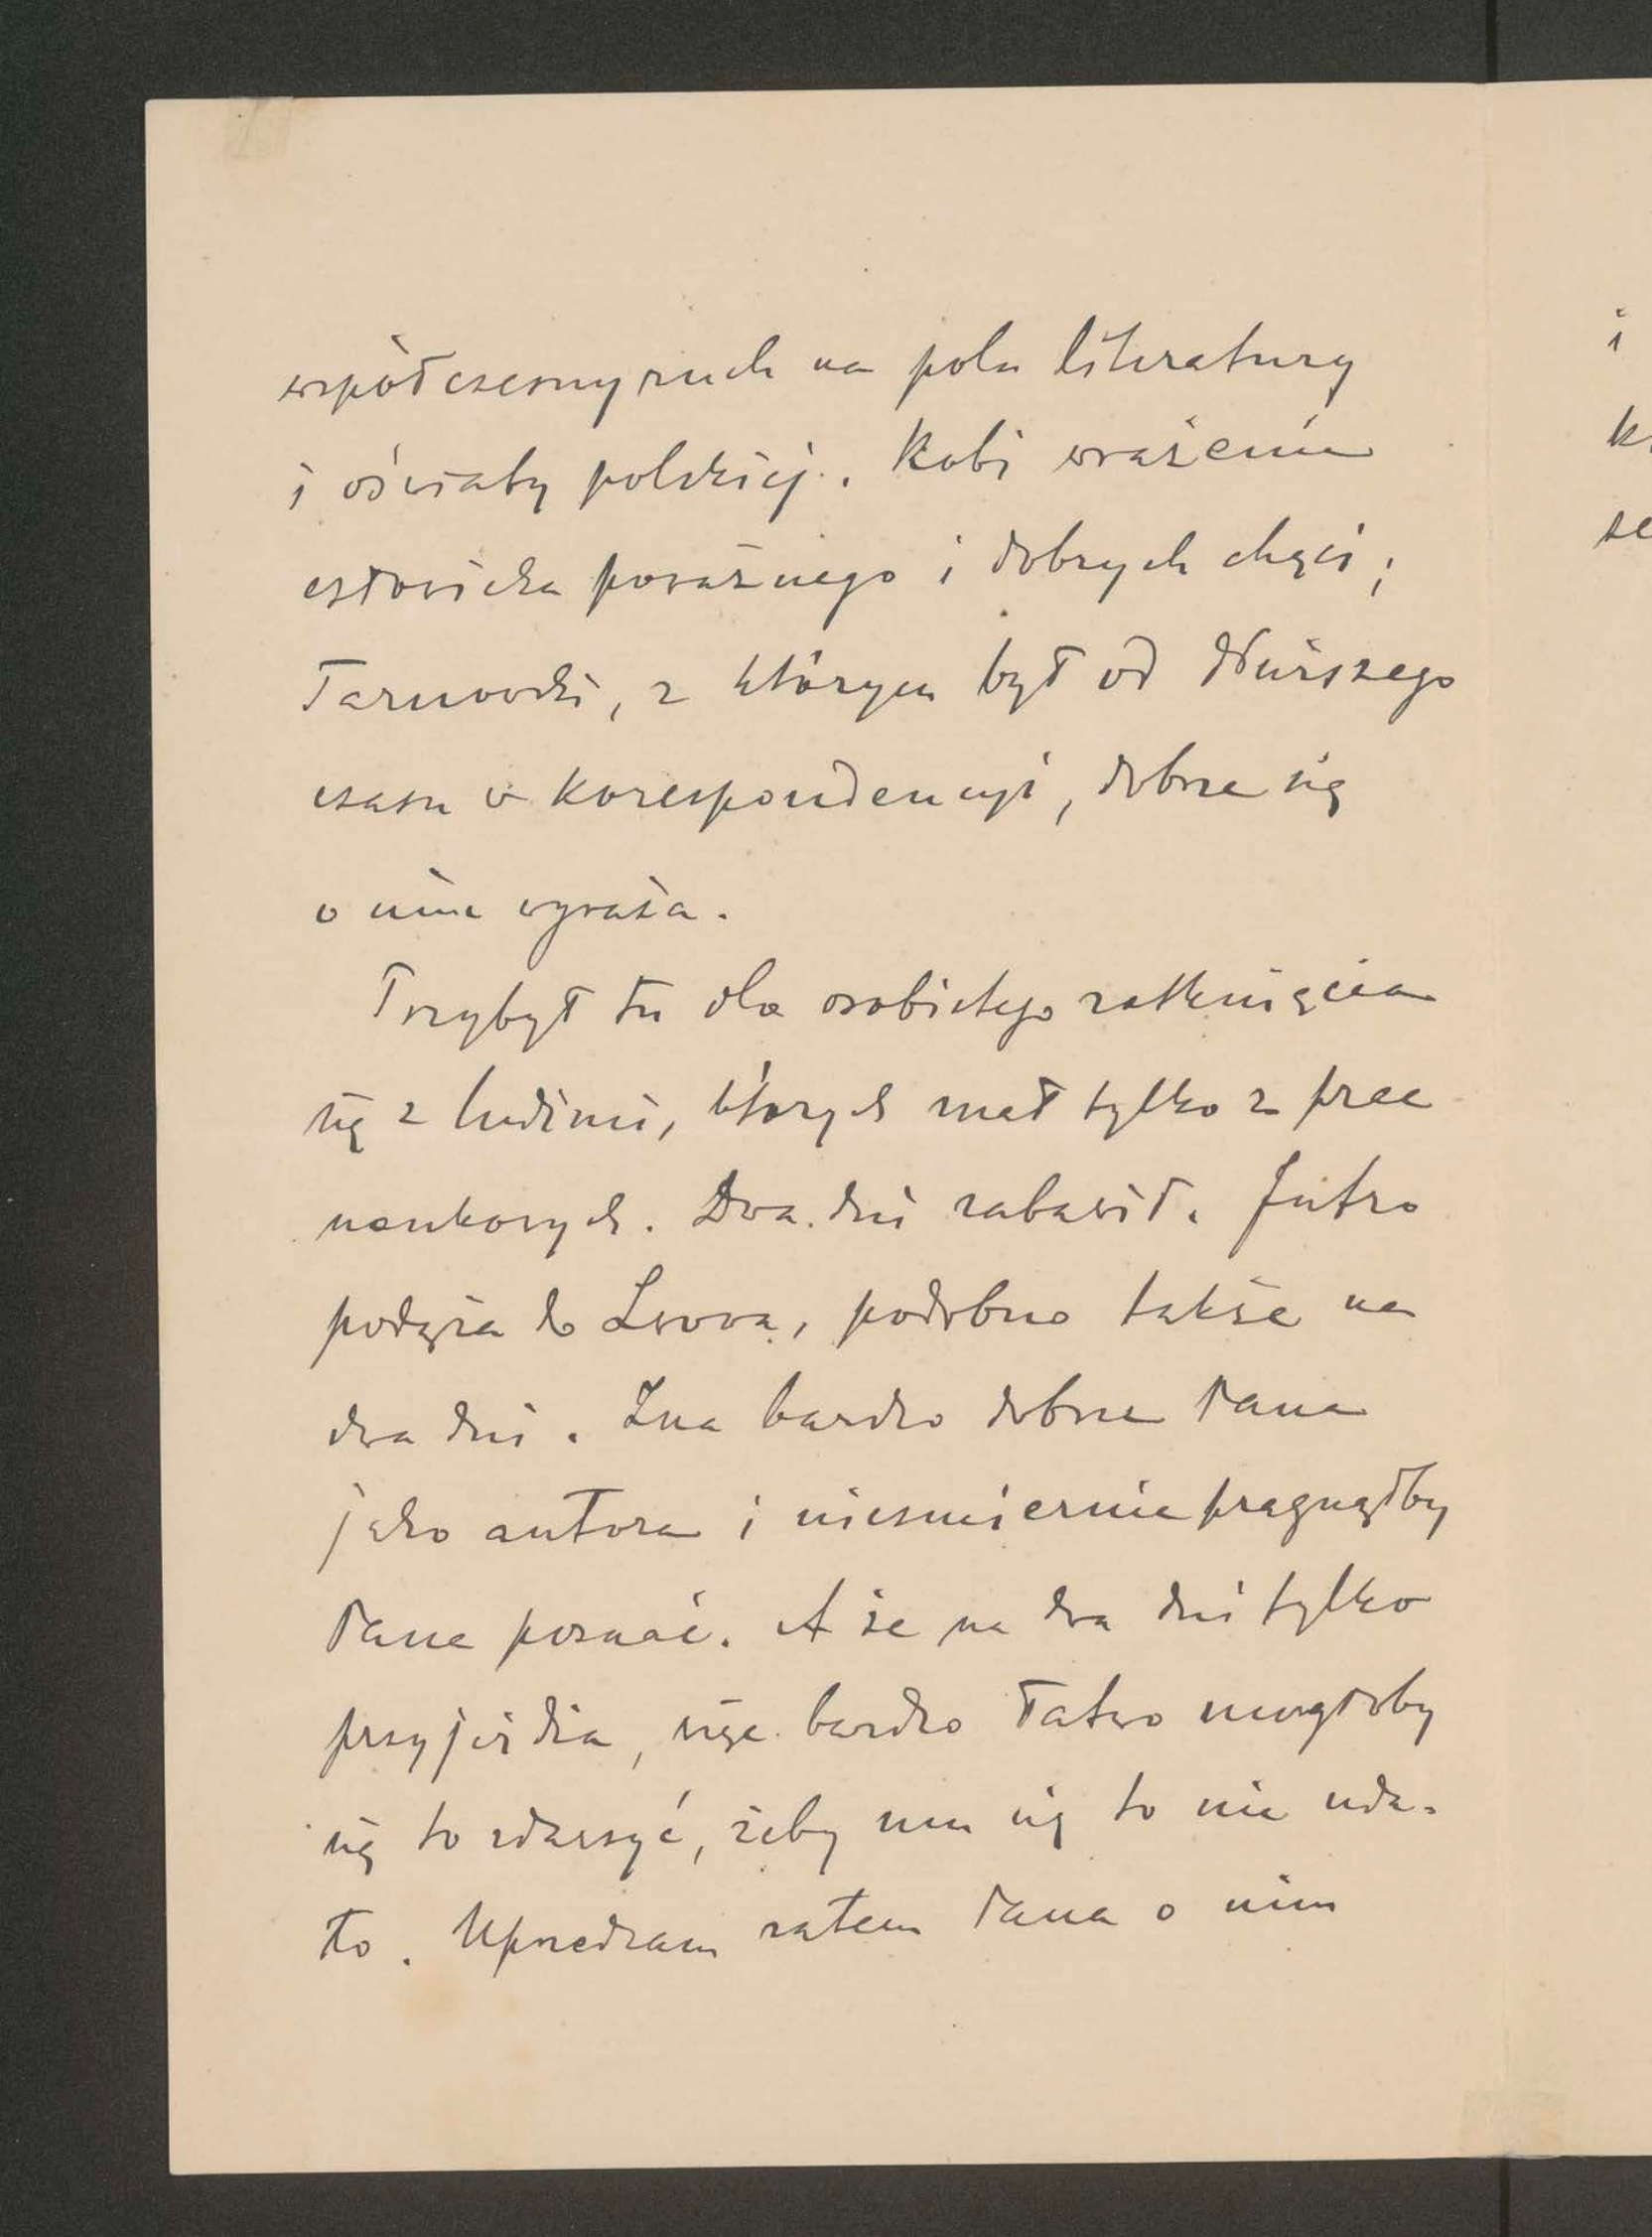 współczesny ruch na polu literatury
i oświaty polskiej. Robi wrażenie
człowieka poważnego i dobrych chęci;
Tarnowski, z którym był od dłuższego
czasu w korespondencyi, dobrze się
o nim wyraża.
Przybył tu dla osobistego zetknięcia
się z ludźmi, których znał tylko z prac
naukowych. Dwa dni zabawił. Jutro
podąża do Lwowa, podobno także na
dwa dni. Zna bardzo dobrze Pana
jako autora i niezmiernie pragnąłby
Pana poznać. A że na dwa dni tylko
przyjeżdża, więc bardzo łatwo mogłoby
się to zdarzyć, żeby mu się to nie uda-
ło. Uprzedzam zatem Pana o nim
i